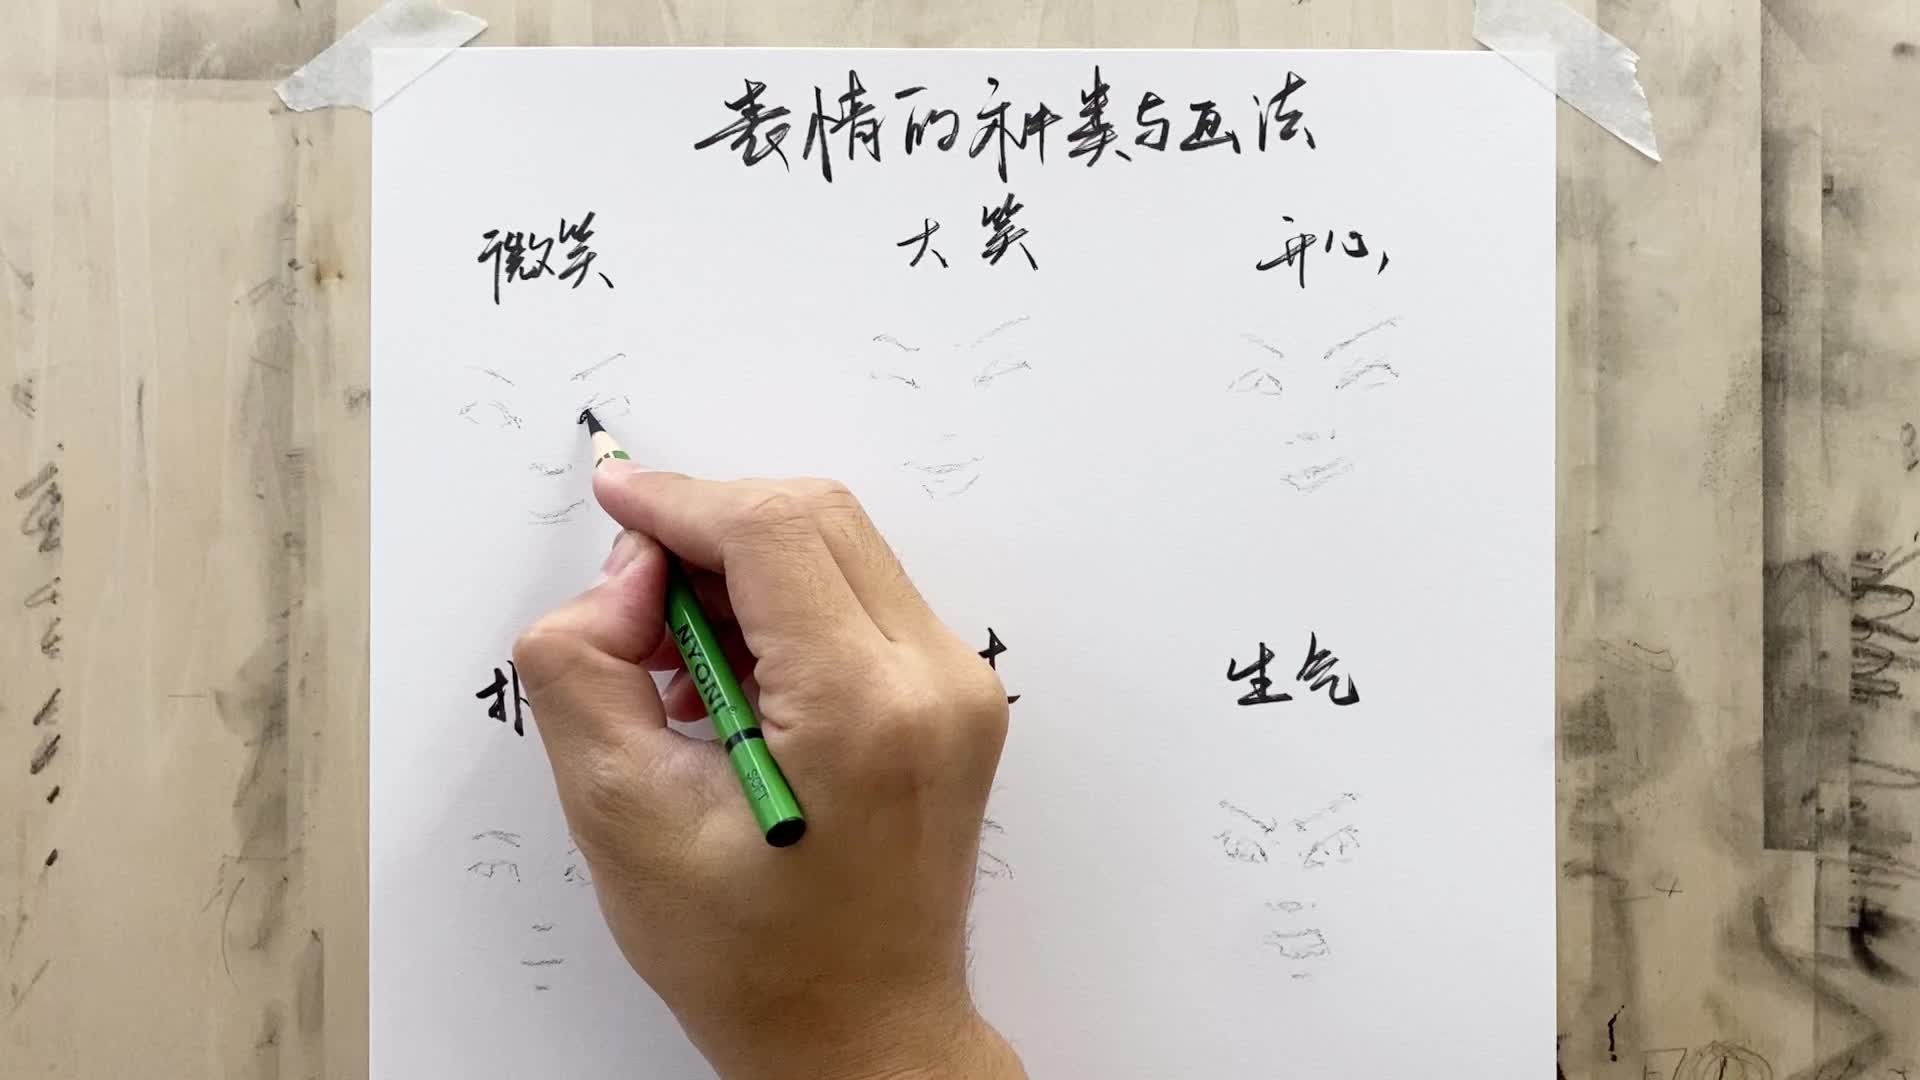 表情的种类与画法
微笑 大笑 开心,
生气
NYONI